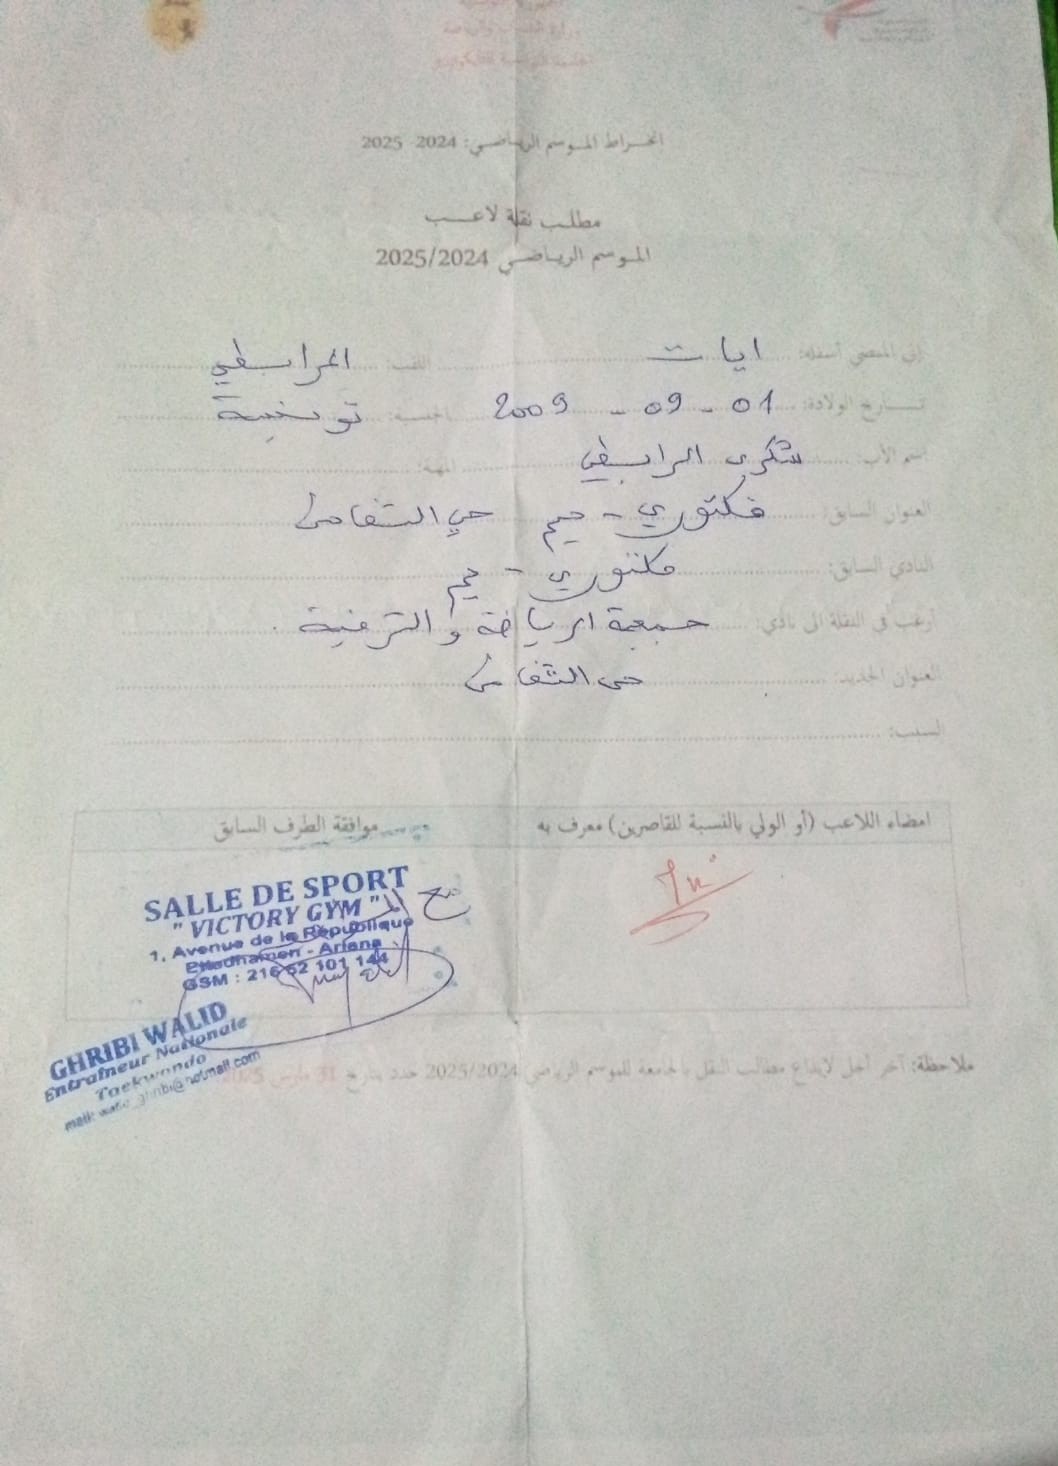 الجامعة التونسية للتايكواندو
انخراط الموسم الرياضي: 2024- 2025
مطلب نقلة لاعب
الموسم الرياضي 2025/2024
إني الممضي أسفله: ايات اللقب: المرابطي
تاريخ الولادة: 01 - 09 - 2009 الجنسية: تونسية
اسم الأب: شكري المرابطي المهنة:
العنوان السابق: فكتوري - جيم حي التضامن
النادي السابق: فكتوري - جيم
أرغب في النقلة الى نادي: جمعية الرياضة والترفيه
العنوان الجديد: حي التضامن
السبب:
امضاء اللاعب (أو الولي بالنسبة للقاصرين) معرف به
موافقة الطرف السابق
SALLE DE SPORT
" VICTORY GYM "
1, Avenue de la République
Ettadhamen - Ariana
GSM : 216 52 101 144
GHRIBI WALID
Entraîneur Nationale
Taekwondo
mail: walid_ghribi@hotmail.com
ملاحظة: آخر أجل لإيداع مطالب النقل بالجامعة للموسم الرياضي 2025/2024 حدد بتاريخ 31 مارس 2025